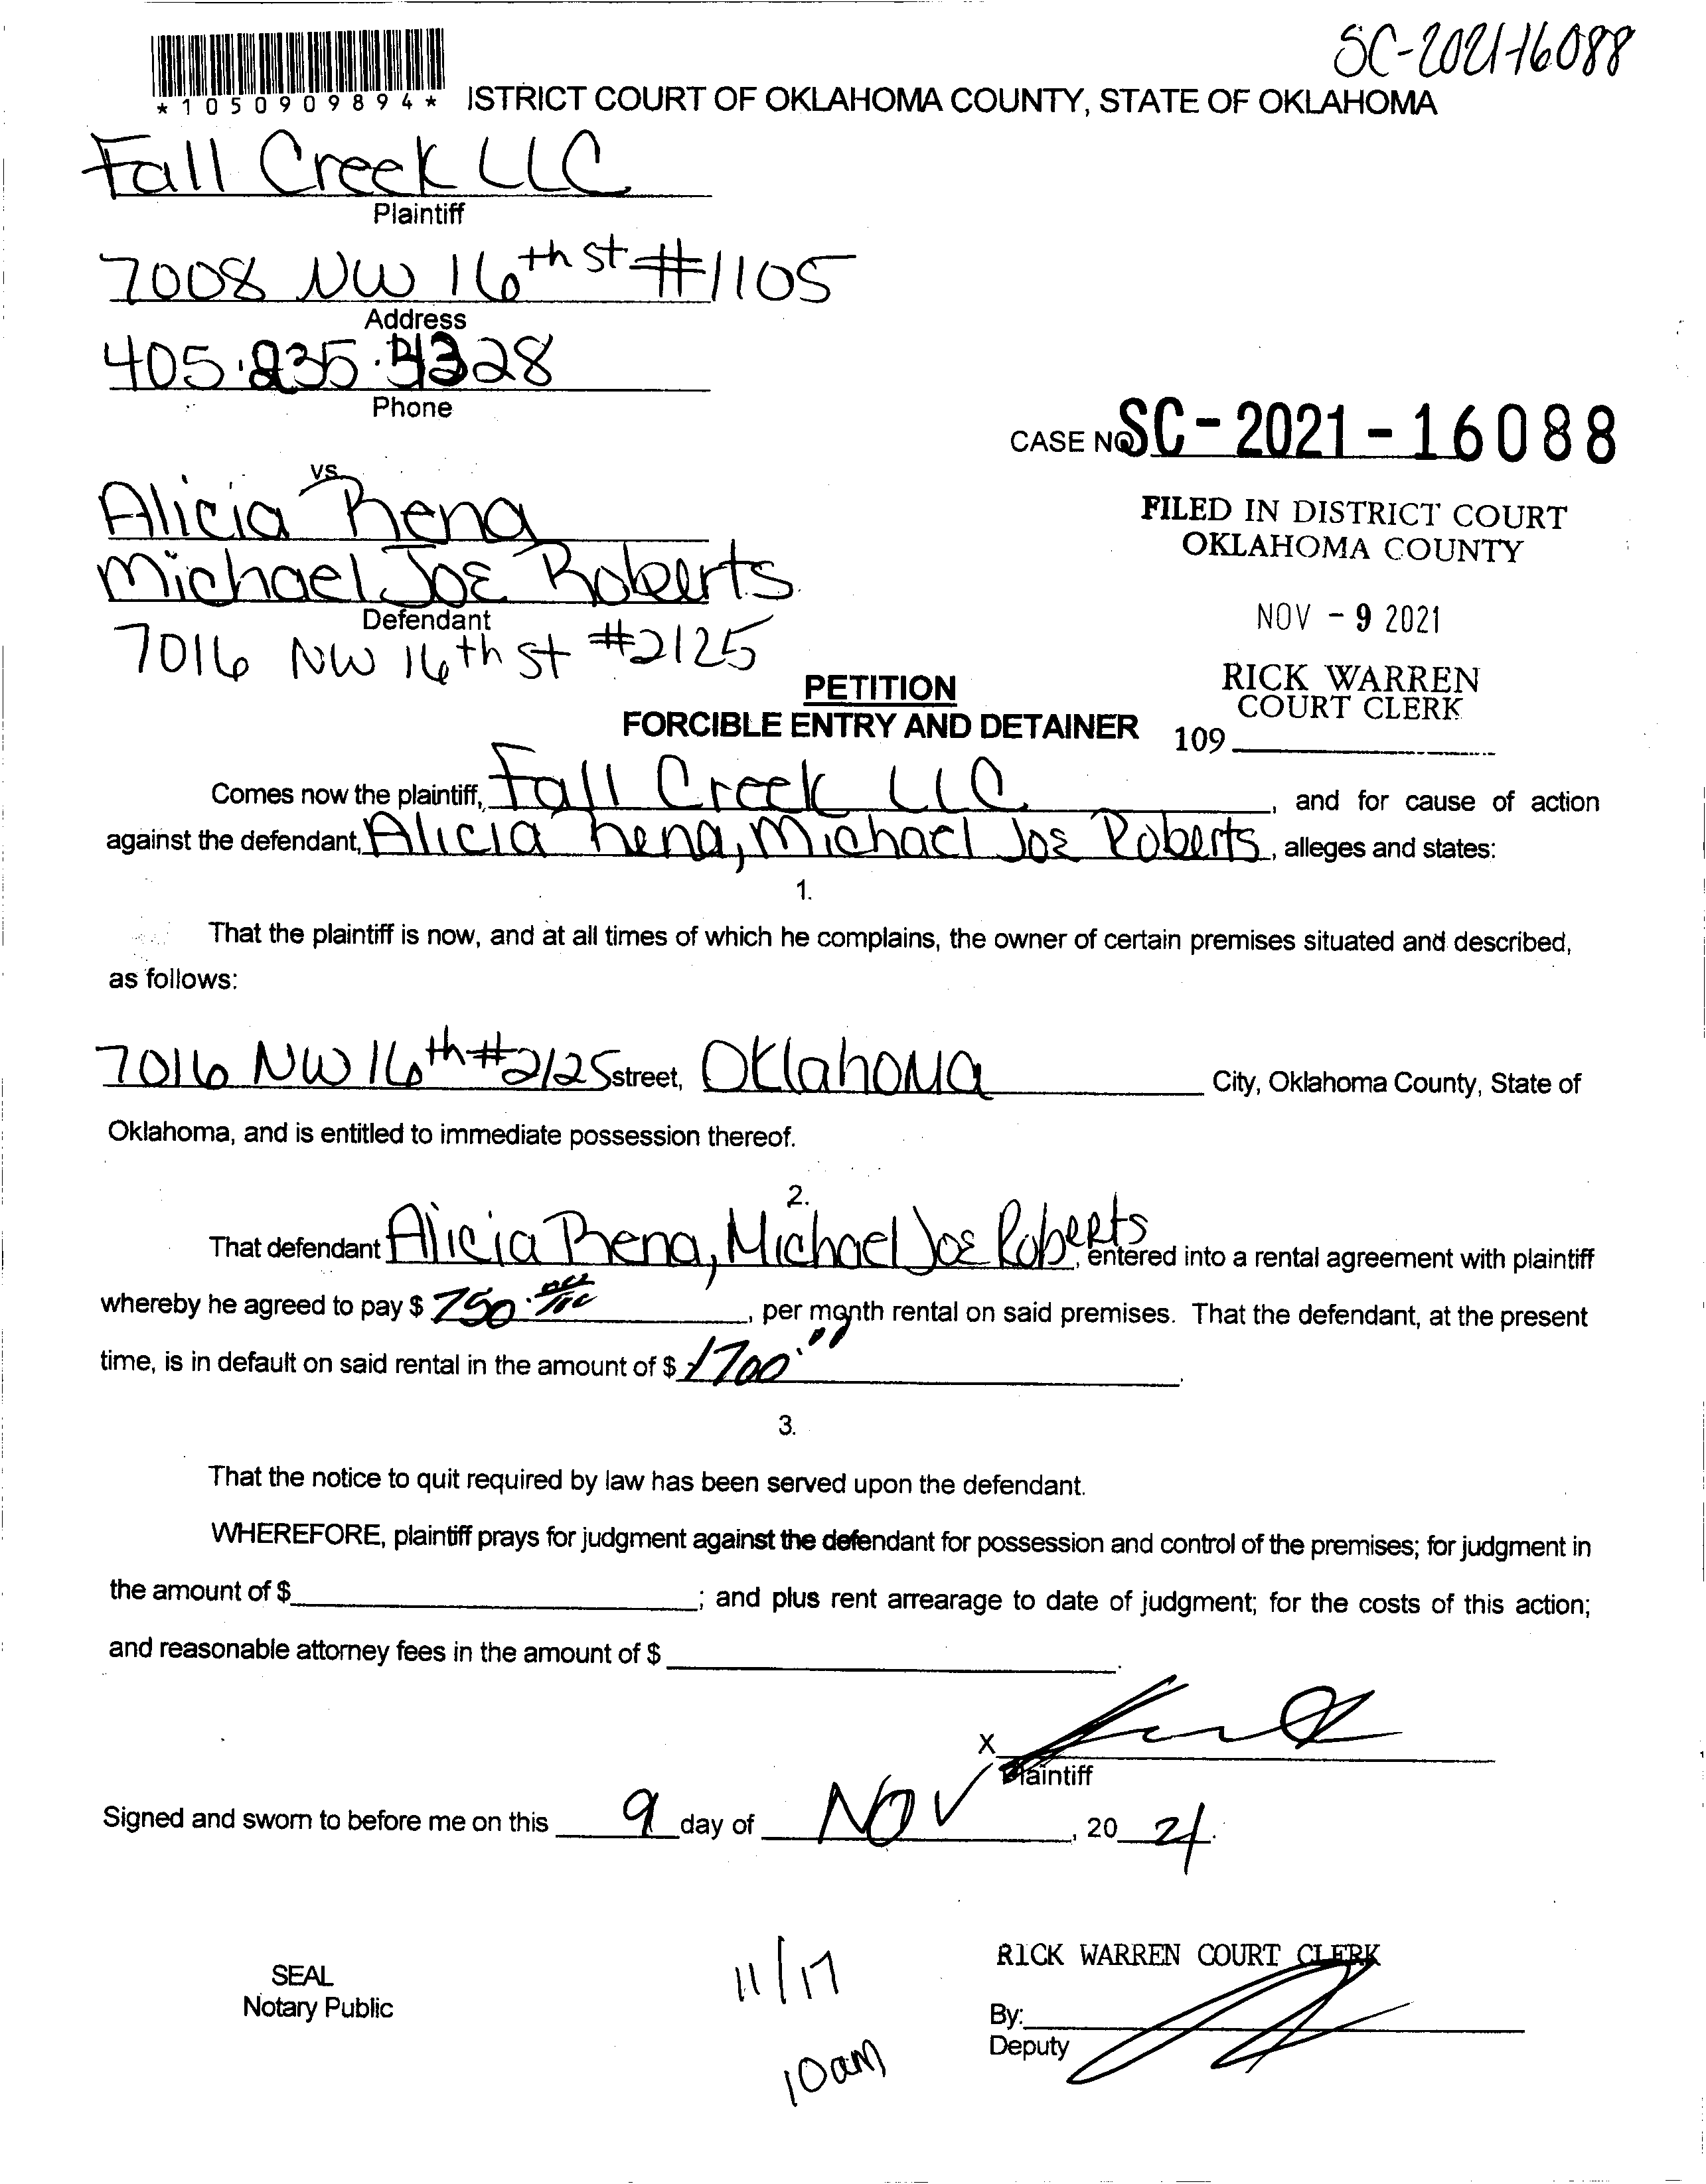 SC-2021-16088
*1050909894* ISTRICT COURT OF OKLAHOMA COUNTY, STATE OF OKLAHOMA
Fall Creek LLC
Plaintiff
7008 NW 16th st #1105
Address
405.235.4328
Phone
CASE NO. SC-2021-16088
vs.
FILED IN DISTRICT COURT
OKLAHOMA COUNTY
Alicia Rena
Michael Joe Roberts
Defendant
NOV - 9 2021
7016 NW 16th st #2125
RICK WARREN
COURT CLERK
PETITION
FORCIBLE ENTRY AND DETAINER
109
Comes now the plaintiff, Fall Creek LLC, and for cause of action
against the defendant, Alicia Rena, Michael Joe Roberts, alleges and states:
1.
That the plaintiff is now, and at all times of which he complains, the owner of certain premises situated and described,
as follows:
7016 NW 16th #2125 street, Oklahoma City, Oklahoma County, State of
Oklahoma, and is entitled to immediate possession thereof.
2.
That defendant Alicia Rena, Michael Joe Roberts, entered into a rental agreement with plaintiff
whereby he agreed to pay $ 750. , per month rental on said premises. That the defendant, at the present
time, is in default on said rental in the amount of $ 1700.00.
3.
That the notice to quit required by law has been served upon the defendant.
WHEREFORE, plaintiff prays for judgment against the defendant for possession and control of the premises; for judgment in
the amount of $ ; and plus rent arrearage to date of judgment; for the costs of this action;
and reasonable attorney fees in the amount of $ .
X
Plaintiff
Signed and sworn to before me on this 9 day of Nov, 20 21.
SEAL
Notary Public
11/17
10am
RICK WARREN COURT CLERK
By:
Deputy